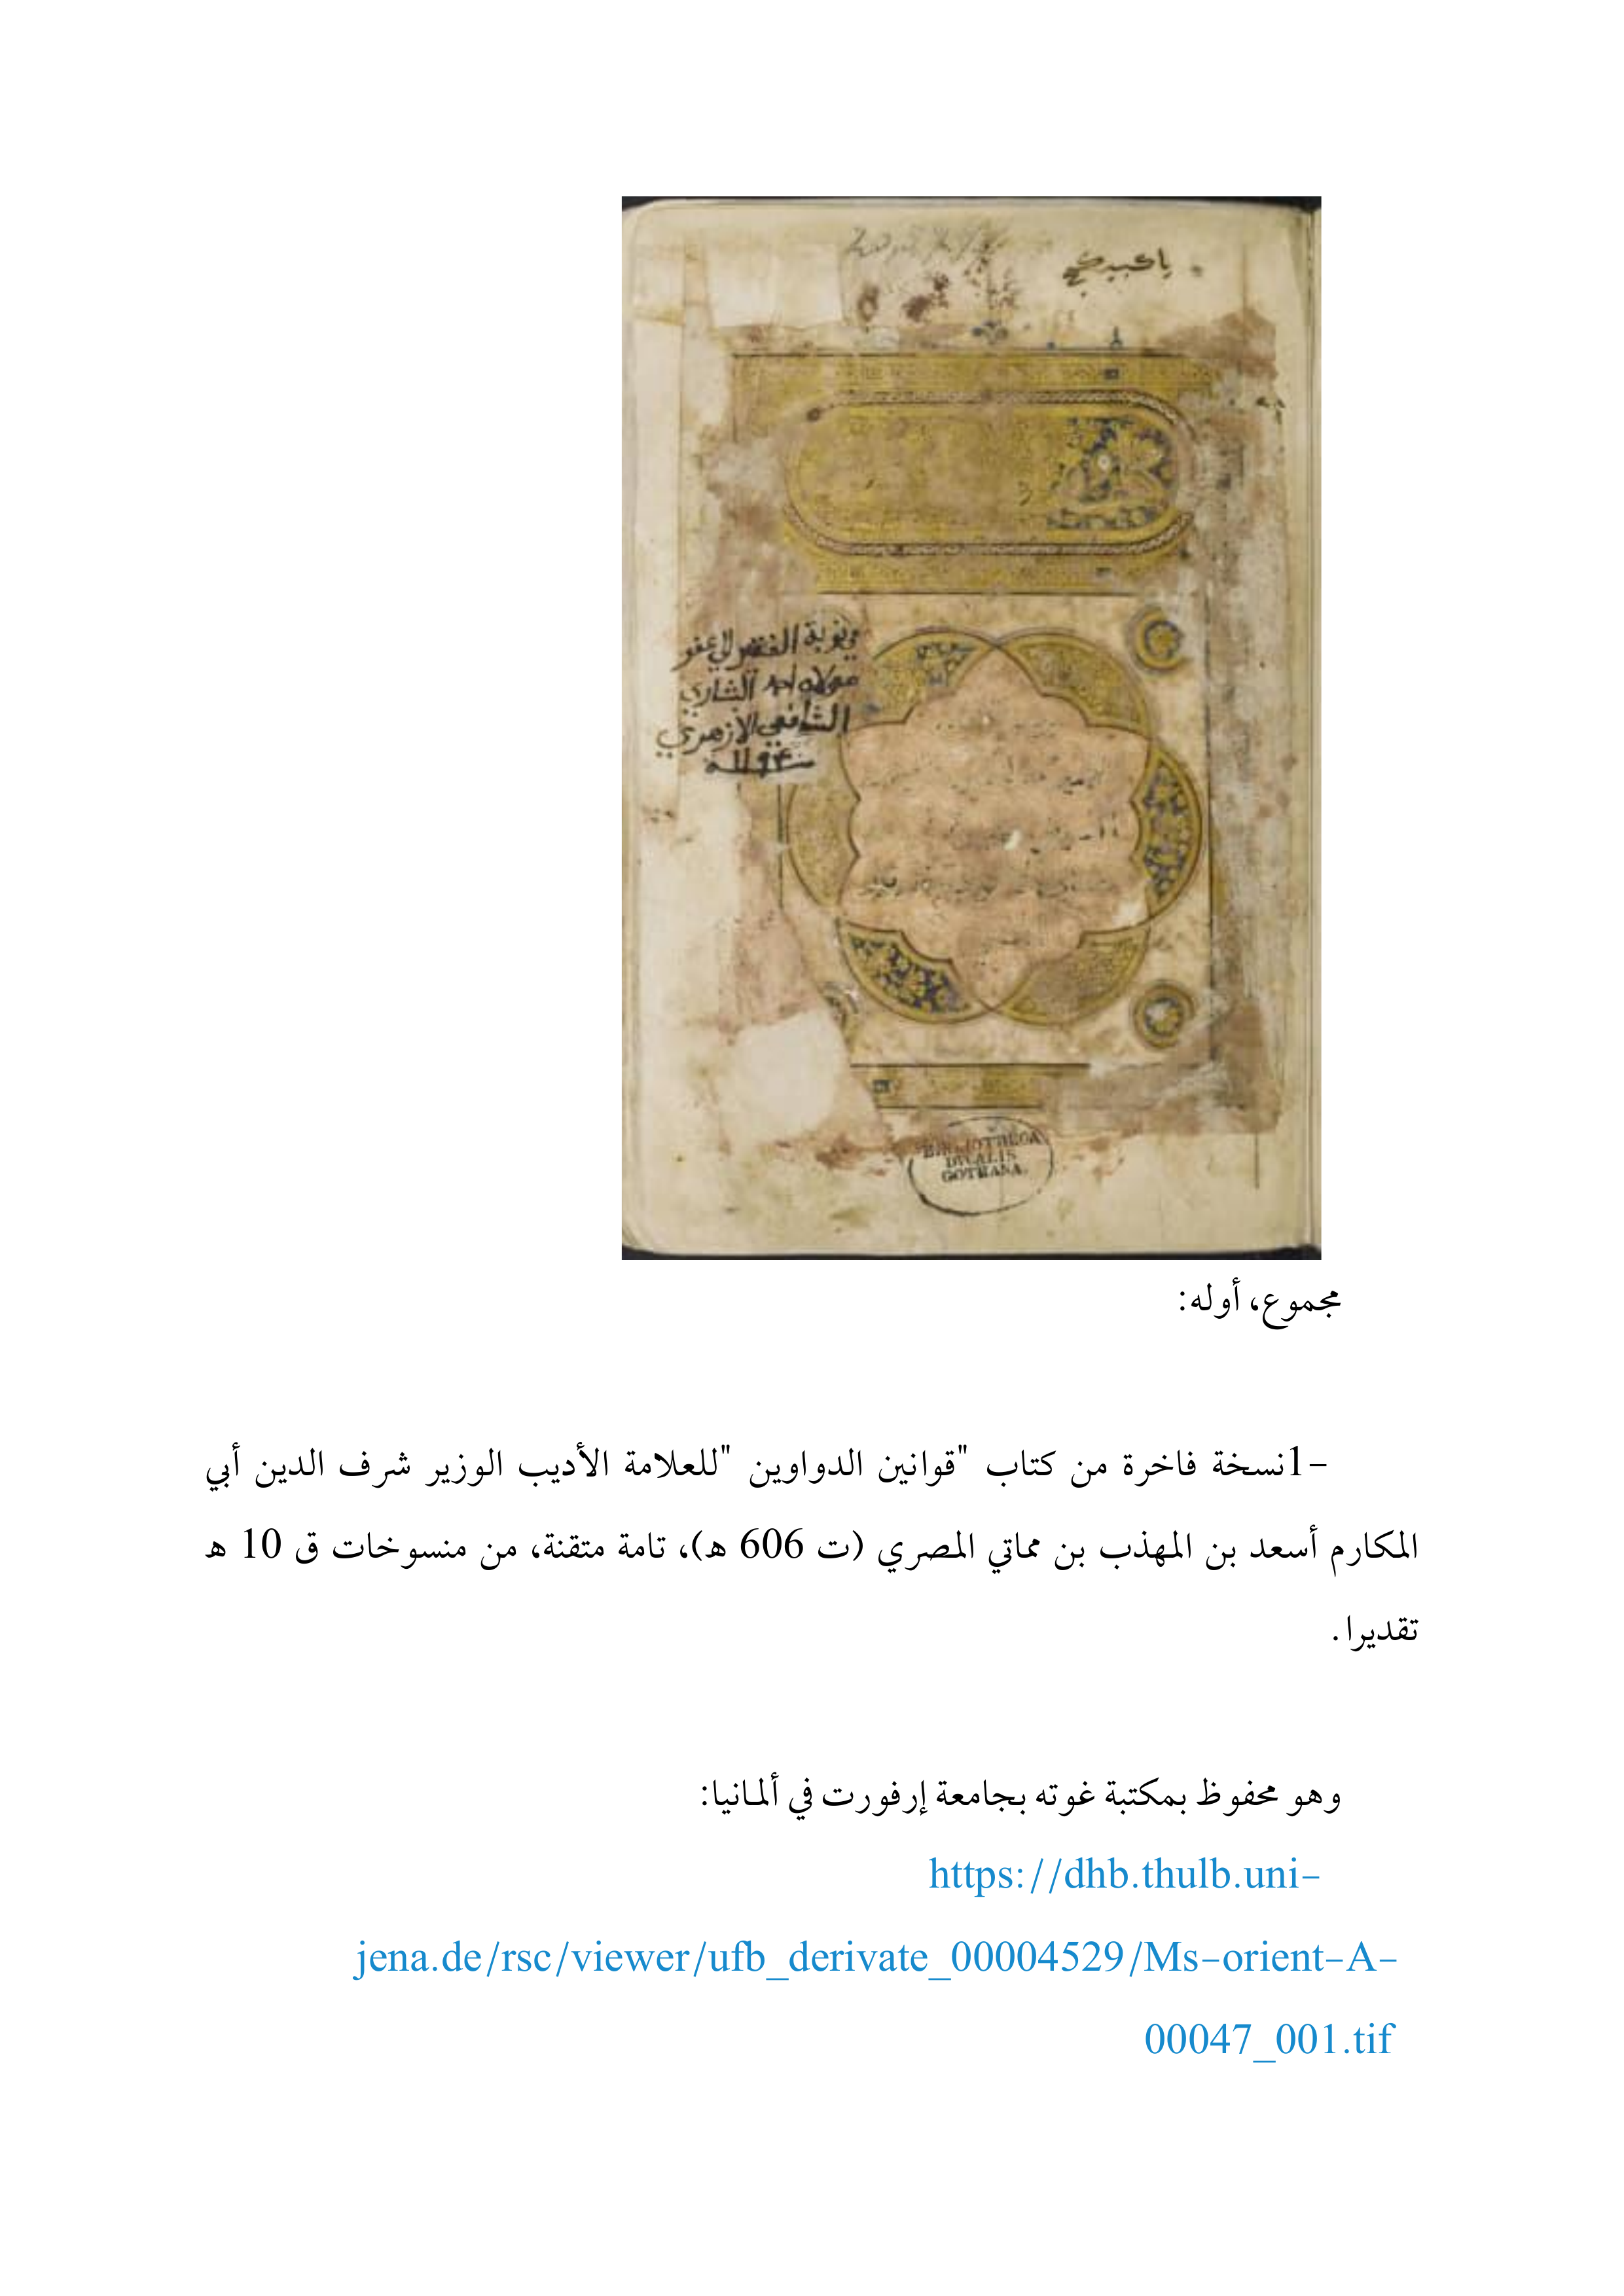 يا كبيكج
بنوبة الفقير إلى عفو
مولاه احمد الشاري
الشافعي الأزهري
سنة
BIBLIOTHECA
DVCALIS
GOTHANA.
مجموع، أوله:
-1نسخة فاخرة من كتاب "قوانين الدواوين "للعلامة الأديب الوزير شرف الدين أبي
المكارم أسعد بن المهذب بن مماتي المصري (ت 606 ه)، تامة متقنة، من منسوخات ق 10 ه
تقديرا.
وهو محفوظ بمكتبة غوته بجامعة إرفورت في ألمانيا:
https://dhb.thulb.uni-
jena.de/rsc/viewer/ufb_derivate_00004529/Ms-orient-A-
00047_001.tif